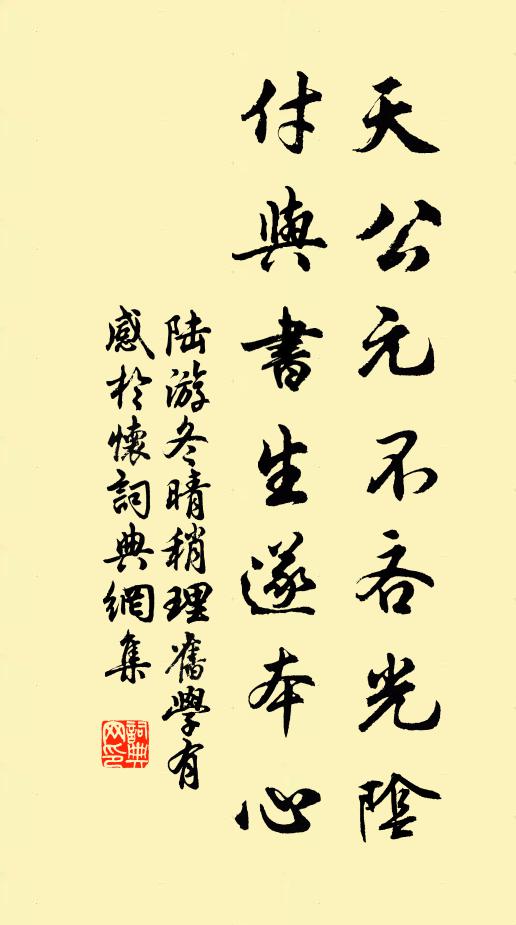 天公元不吝光陰
付與書生遂本心
陸游冬晴稍理舊學有
感於懷詞典網集
詞典网印